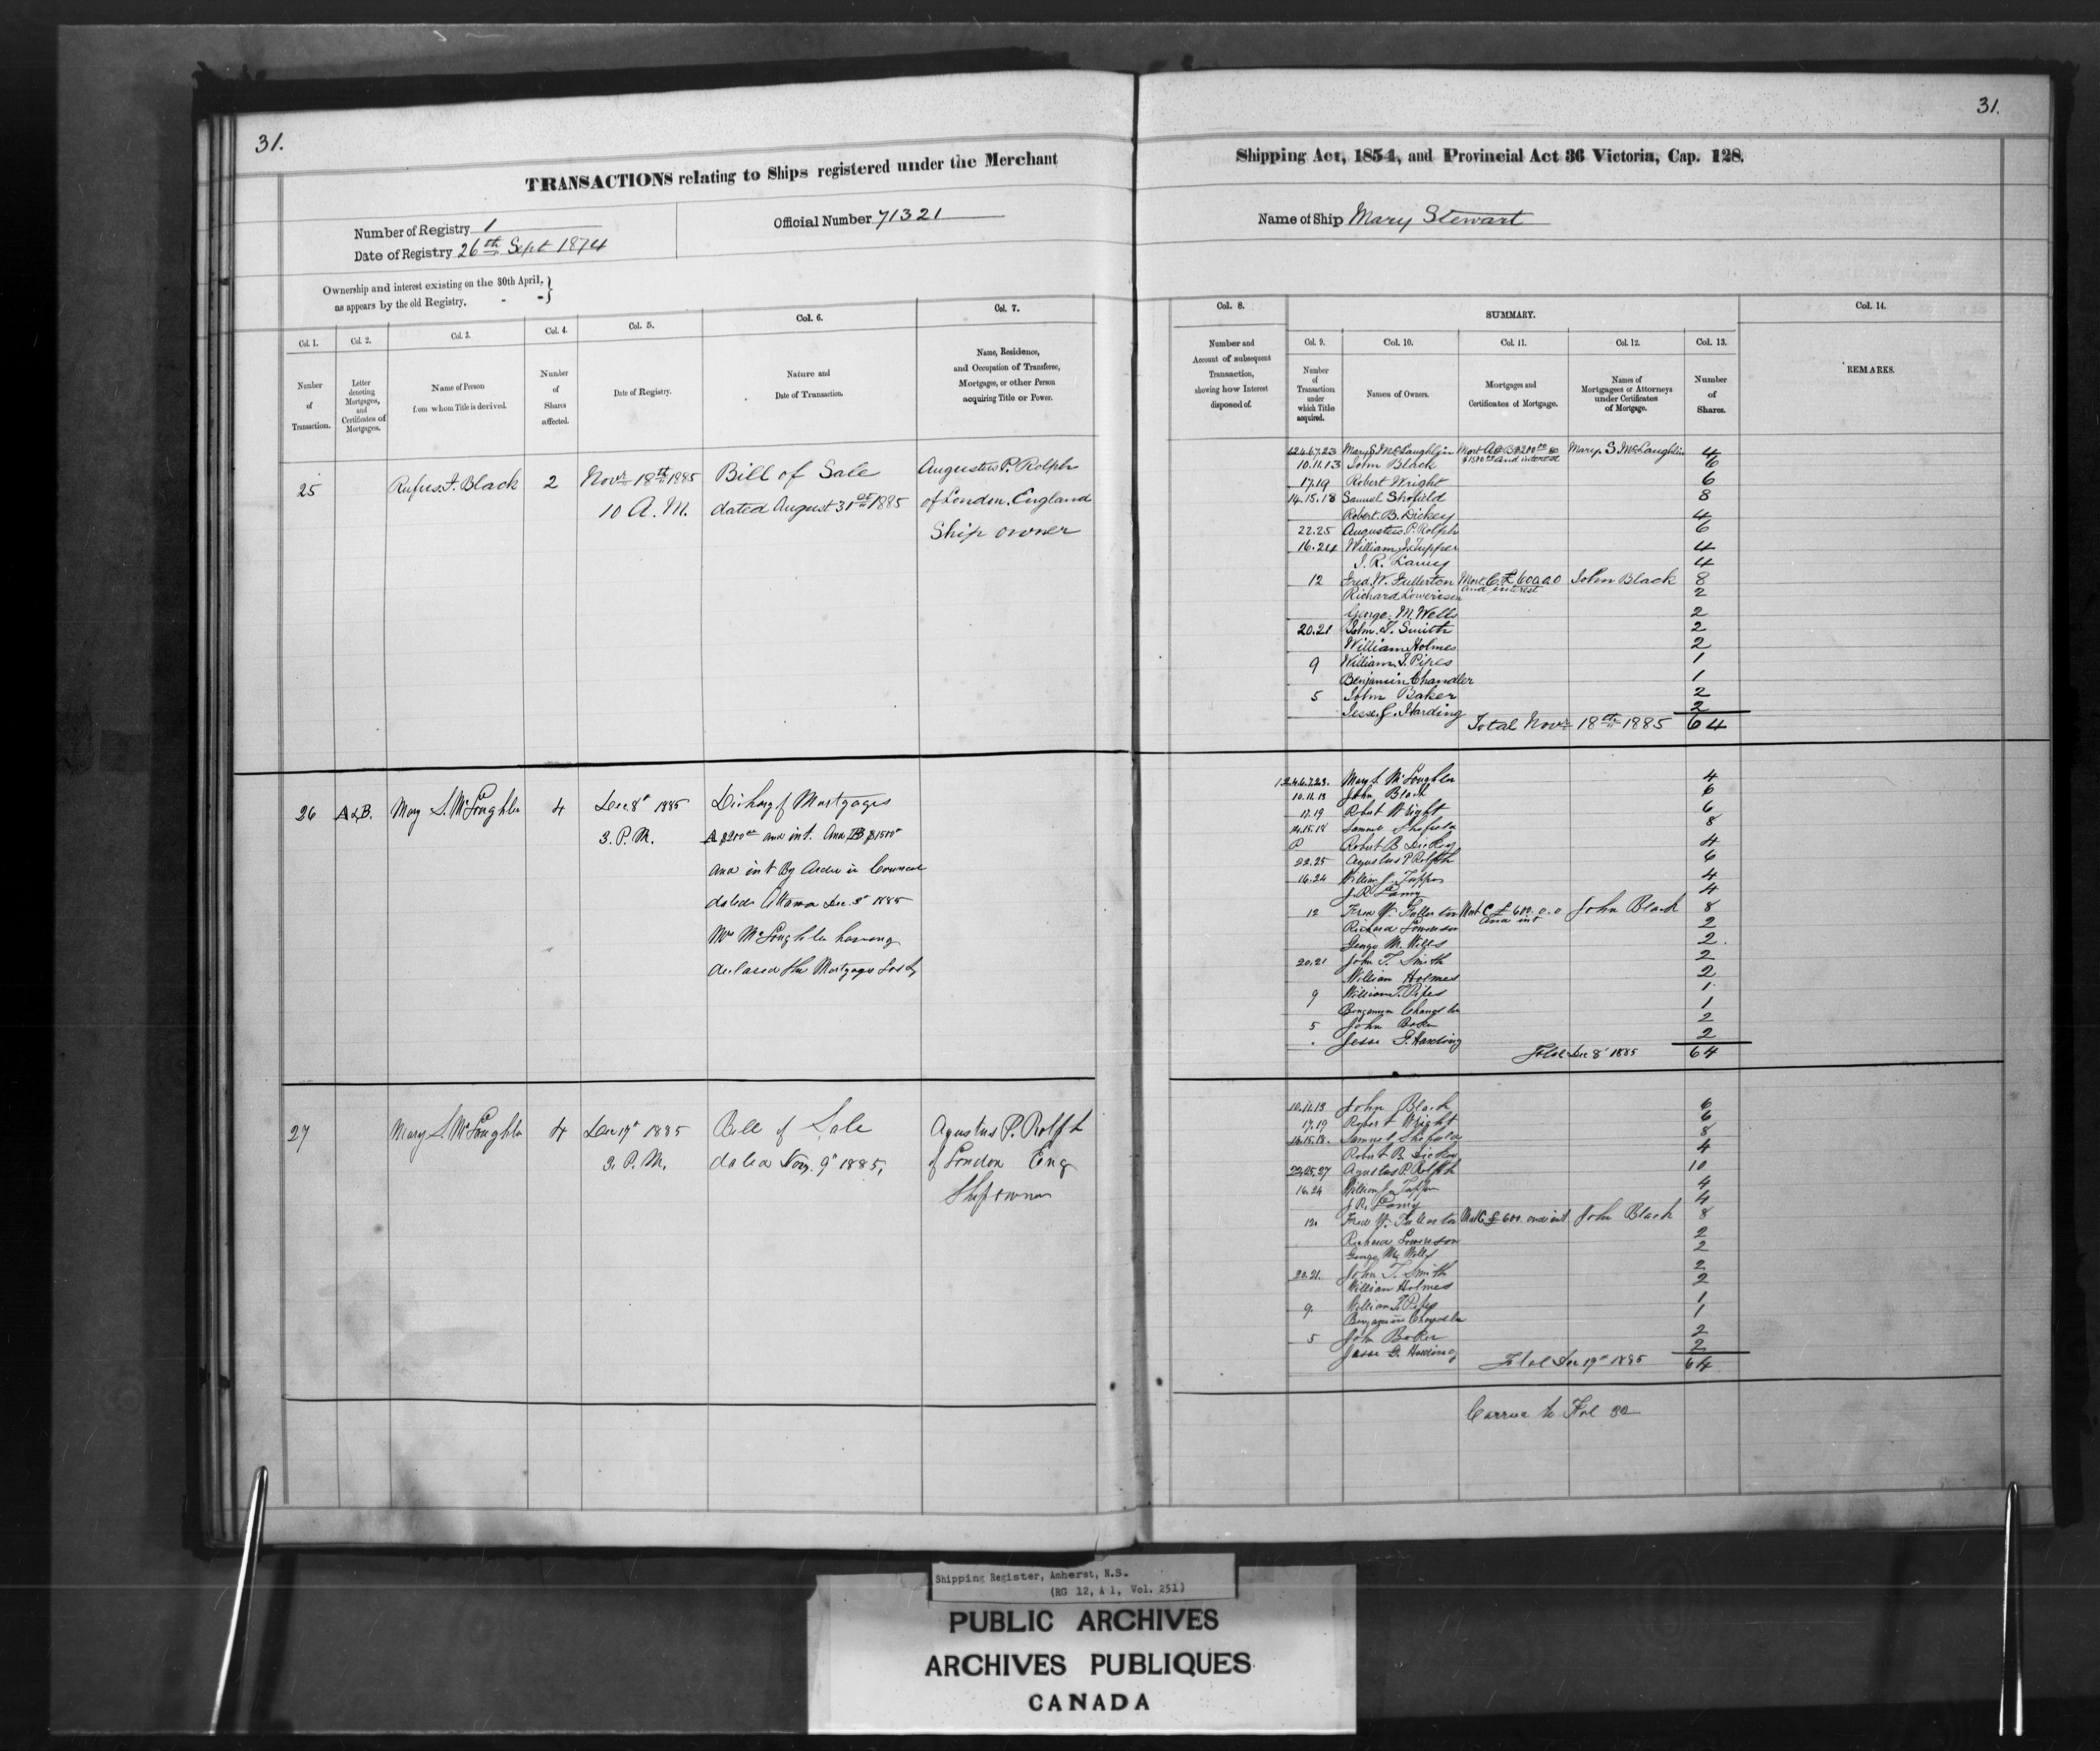 31.
31.
TRANSACTIONS relating to Ships registered under the Merchant
Shipping Act, 1854, and Provincial Act 36 Victoria, Cap. 128.
Number of Registry 1
Official Number 71321
Name of Ship Mary Stewart
Date of Registry 26th Sept 1874
Ownership and interest existing on the 30th April,
as appears by the old Registry. - -
Col. 1.
Number
of
Transaction.
Col. 2.
Letter
denoting
Mortgages,
and
Certificates of
Mortgages.
Col. 3.
Name of Person
from whom Title is derived.
Col. 4.
Number
of
Shares
affected.
Col. 5.
Date of Registry.
Col. 6.
Nature and
Date of Transaction.
Col. 7.
Name, Residence,
and Occupation of Transferee,
Mortgagee, or other Person
acquiring Title or Power.
Col. 8.
Number and
Account of subsequent
Transaction,
showing how Interest
disposed of.
SUMMARY.
Col. 9.
Number
of
Transaction
under
which Title
acquired.
Col. 10.
Names of Owners.
Col. 11.
Mortgages and
Certificates of Mortgage.
Col. 12.
Names of
Mortgagees or Attorneys
under Certificates
of Mortgage.
Col. 13.
Number
of
Shares.
Col. 14.
REMARKS.
25
Rufus F. Black
2
Novr 18th 1885
10 A.M.
Bill of Sale
dated August 31st 1885
Augustus P. Rolph
of London. England
Ship owner
Mary S. McLaughlin Mary S. McLaughlin 4
and interest
10.11.13 John Black 6
17.19 Robert Wright 6
14.15.18 Samuel Shofield 8
Robert. B. Dickey 4
22.25 Augustus. P. Rolph 6
16.24 William J. Tupper 4
J. R. Lamy 4
12 Fred. W. Fullerton Mort C £600.0.0 John Black 8
and interest
Richard Lowerison 2
George. M. Wells 2
20.21 John. T. Smith 2
William Holmes 2
9 William. T. Pipes 1
Benjamin Chandler 1
5 John Baker 2
Jesse. G. Harding 2
Total Novr 18th 1885 64
26
A & B.
Mary S. McLoughlin
4
Dec 8th 1885
3. P.M.
Discharg of Mortgages
A $200 and int. and B $1500
and int By Order in Council
dated Ottawa Dec 3d 1885
Mrs McLoughlin having
declared the Mortgages Lost
1.2.4.6.7.23. Mary S. McLoughlin 4
10.11.13 John Black 6
17.19 Robert Wright 6
14.15.18 Samuel Shofield 8
Robert B Dickey 4
22.25 Agustus P Rolfth 6
16.24 William J. Tupper 4
J. R. Lamy 4
12 Fred W. Fullerton Mort C £600.0.0 John Black 8
and int
Richard Lowerison 2
George M. Wells 2
20.21 John T. Smith 2
William Holmes 2
9 William T. Pipes 1
Benjamin Chandler 1
5 John Baker 2
Jesse G. Harding 2
Total Dec 8th 1885 64
27
Mary S. McLoughlin
4
Dec 19th 1885
3. P.M.
Bill of Sale
dated Nov. 9th 1885,
Agustus P. Rolfth
of London Eng
Shipowner
10.11.13 John Black 6
17.19 Robert Wright 6
14.15.18. Samuel Shofield 8
Robert B. Dickey 4
22.25.27 Agustus P. Rolfth 10
16.24 William J. Tupper 4
J. R. Lamy 4
12. Fred W. Fullerton Mort C £600 and int. John Black 8
Richard Lowerison 2
George M. Wells 2
20.21. John T. Smith 2
William Holmes 2
9. William T. Pipes 1
Benjamin Chandler 1
5 John Baker 2
Jesse G. Harding 2
Total Dec 19th 1885 64
Carried to Fol 32
Shipping Register, Amherst, N.S.
(RG 12, A 1, Vol. 251)
PUBLIC ARCHIVES
ARCHIVES PUBLIQUES
CANADA